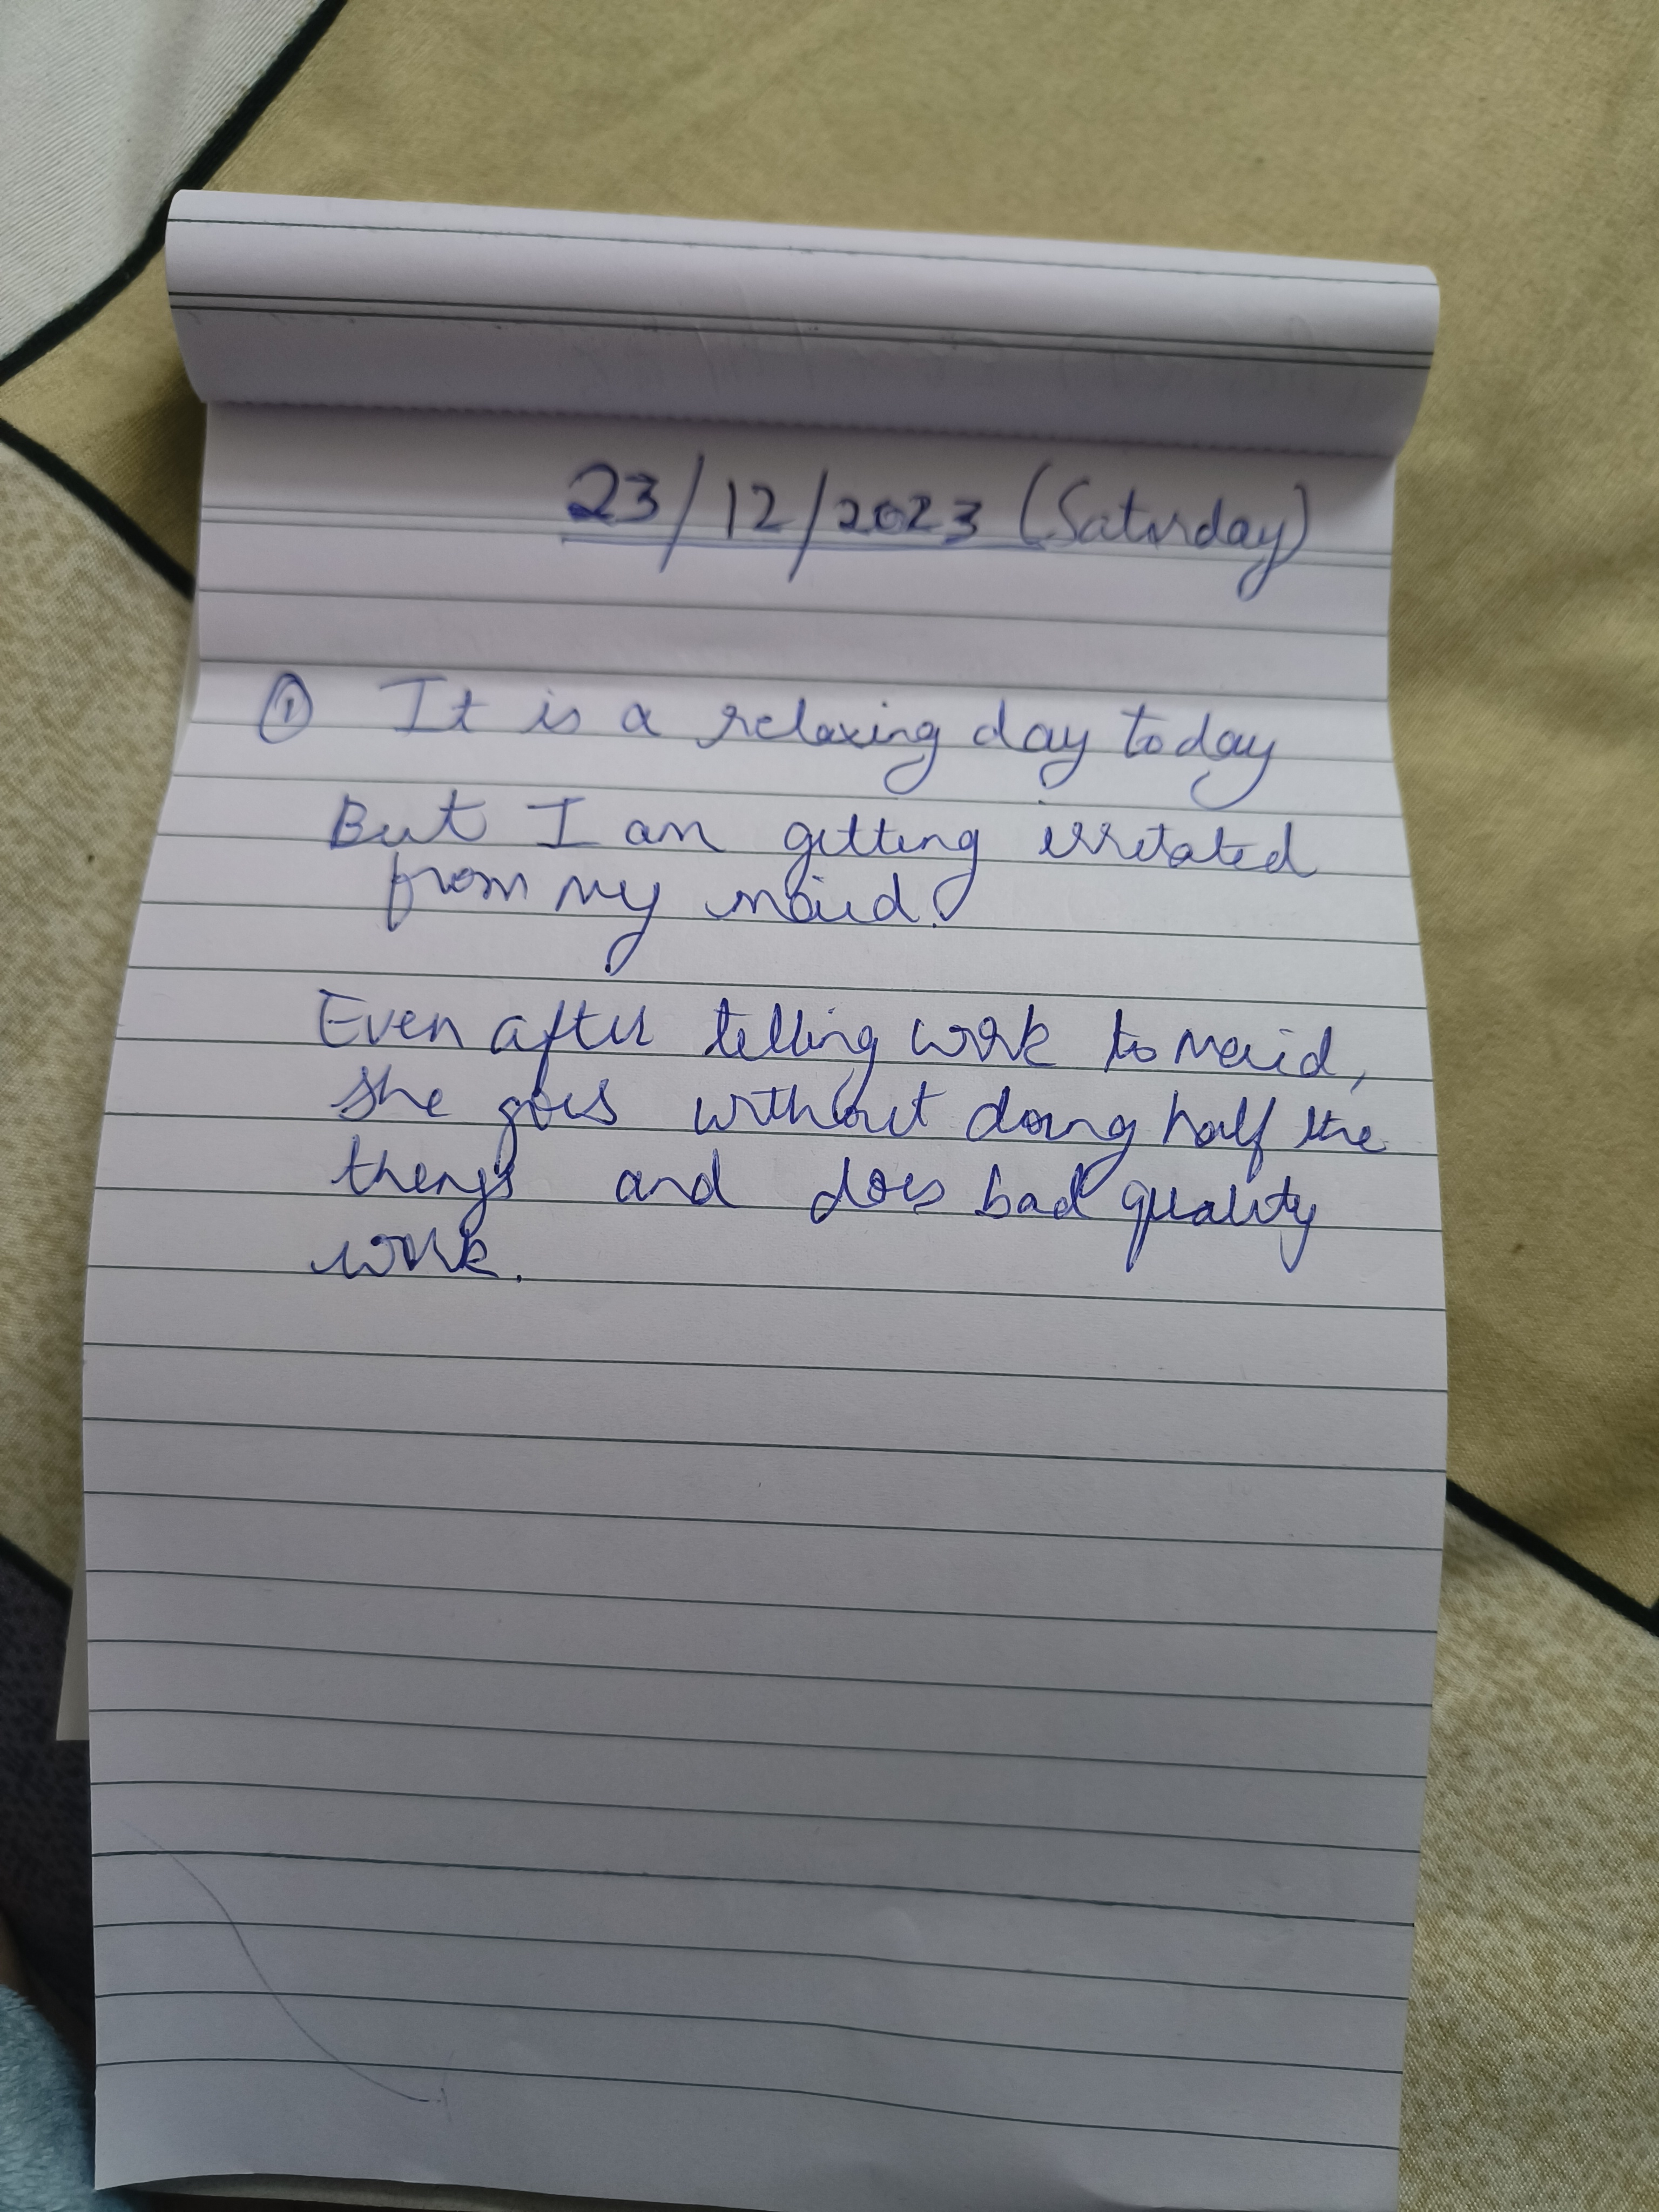 23/12/2023 (Saturday)
① It is a relaxing day today
But I am getting irritated
from my maid.
Even after telling work to maid,
she goes without doing half the
things and does bad quality
work.